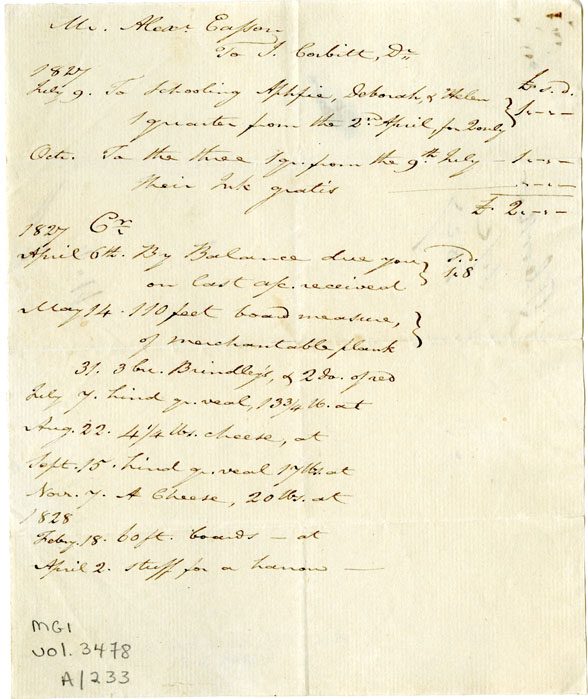 Mr. Alexr. Easson
To J. Corbitt, Dr
1827
£. s. d.
July 9. To Schooling Apphia, Deborah, & Helen
1 quarter from the 2nd April, for 2 only } 1.-.-
Oct. To the three 1 qr. from the 9th July - 1.-.-
their Ink gratis -.-.-
£. 2.-.-
1827 Cr.
April 6th. By Balance due you } s. d.
on last a/c. received 1.8
May 14. 110 feet board measure, }
of merchantable plank
31. 3 bu. Brindley's, & 2 Do. of red
July 7. hind qr. veal, 13 3/4 lb. at
Aug. 22. 4 1/4 lbs. cheese, at
Sept. 15. hind qr. veal 17 lbs. at
Novr. 7. A Cheese, 20 lbs. at
1828
Febry. 18. 60 ft. boards - at
April 2. stuff for a harrow -
MG1
vol. 3478
A/233